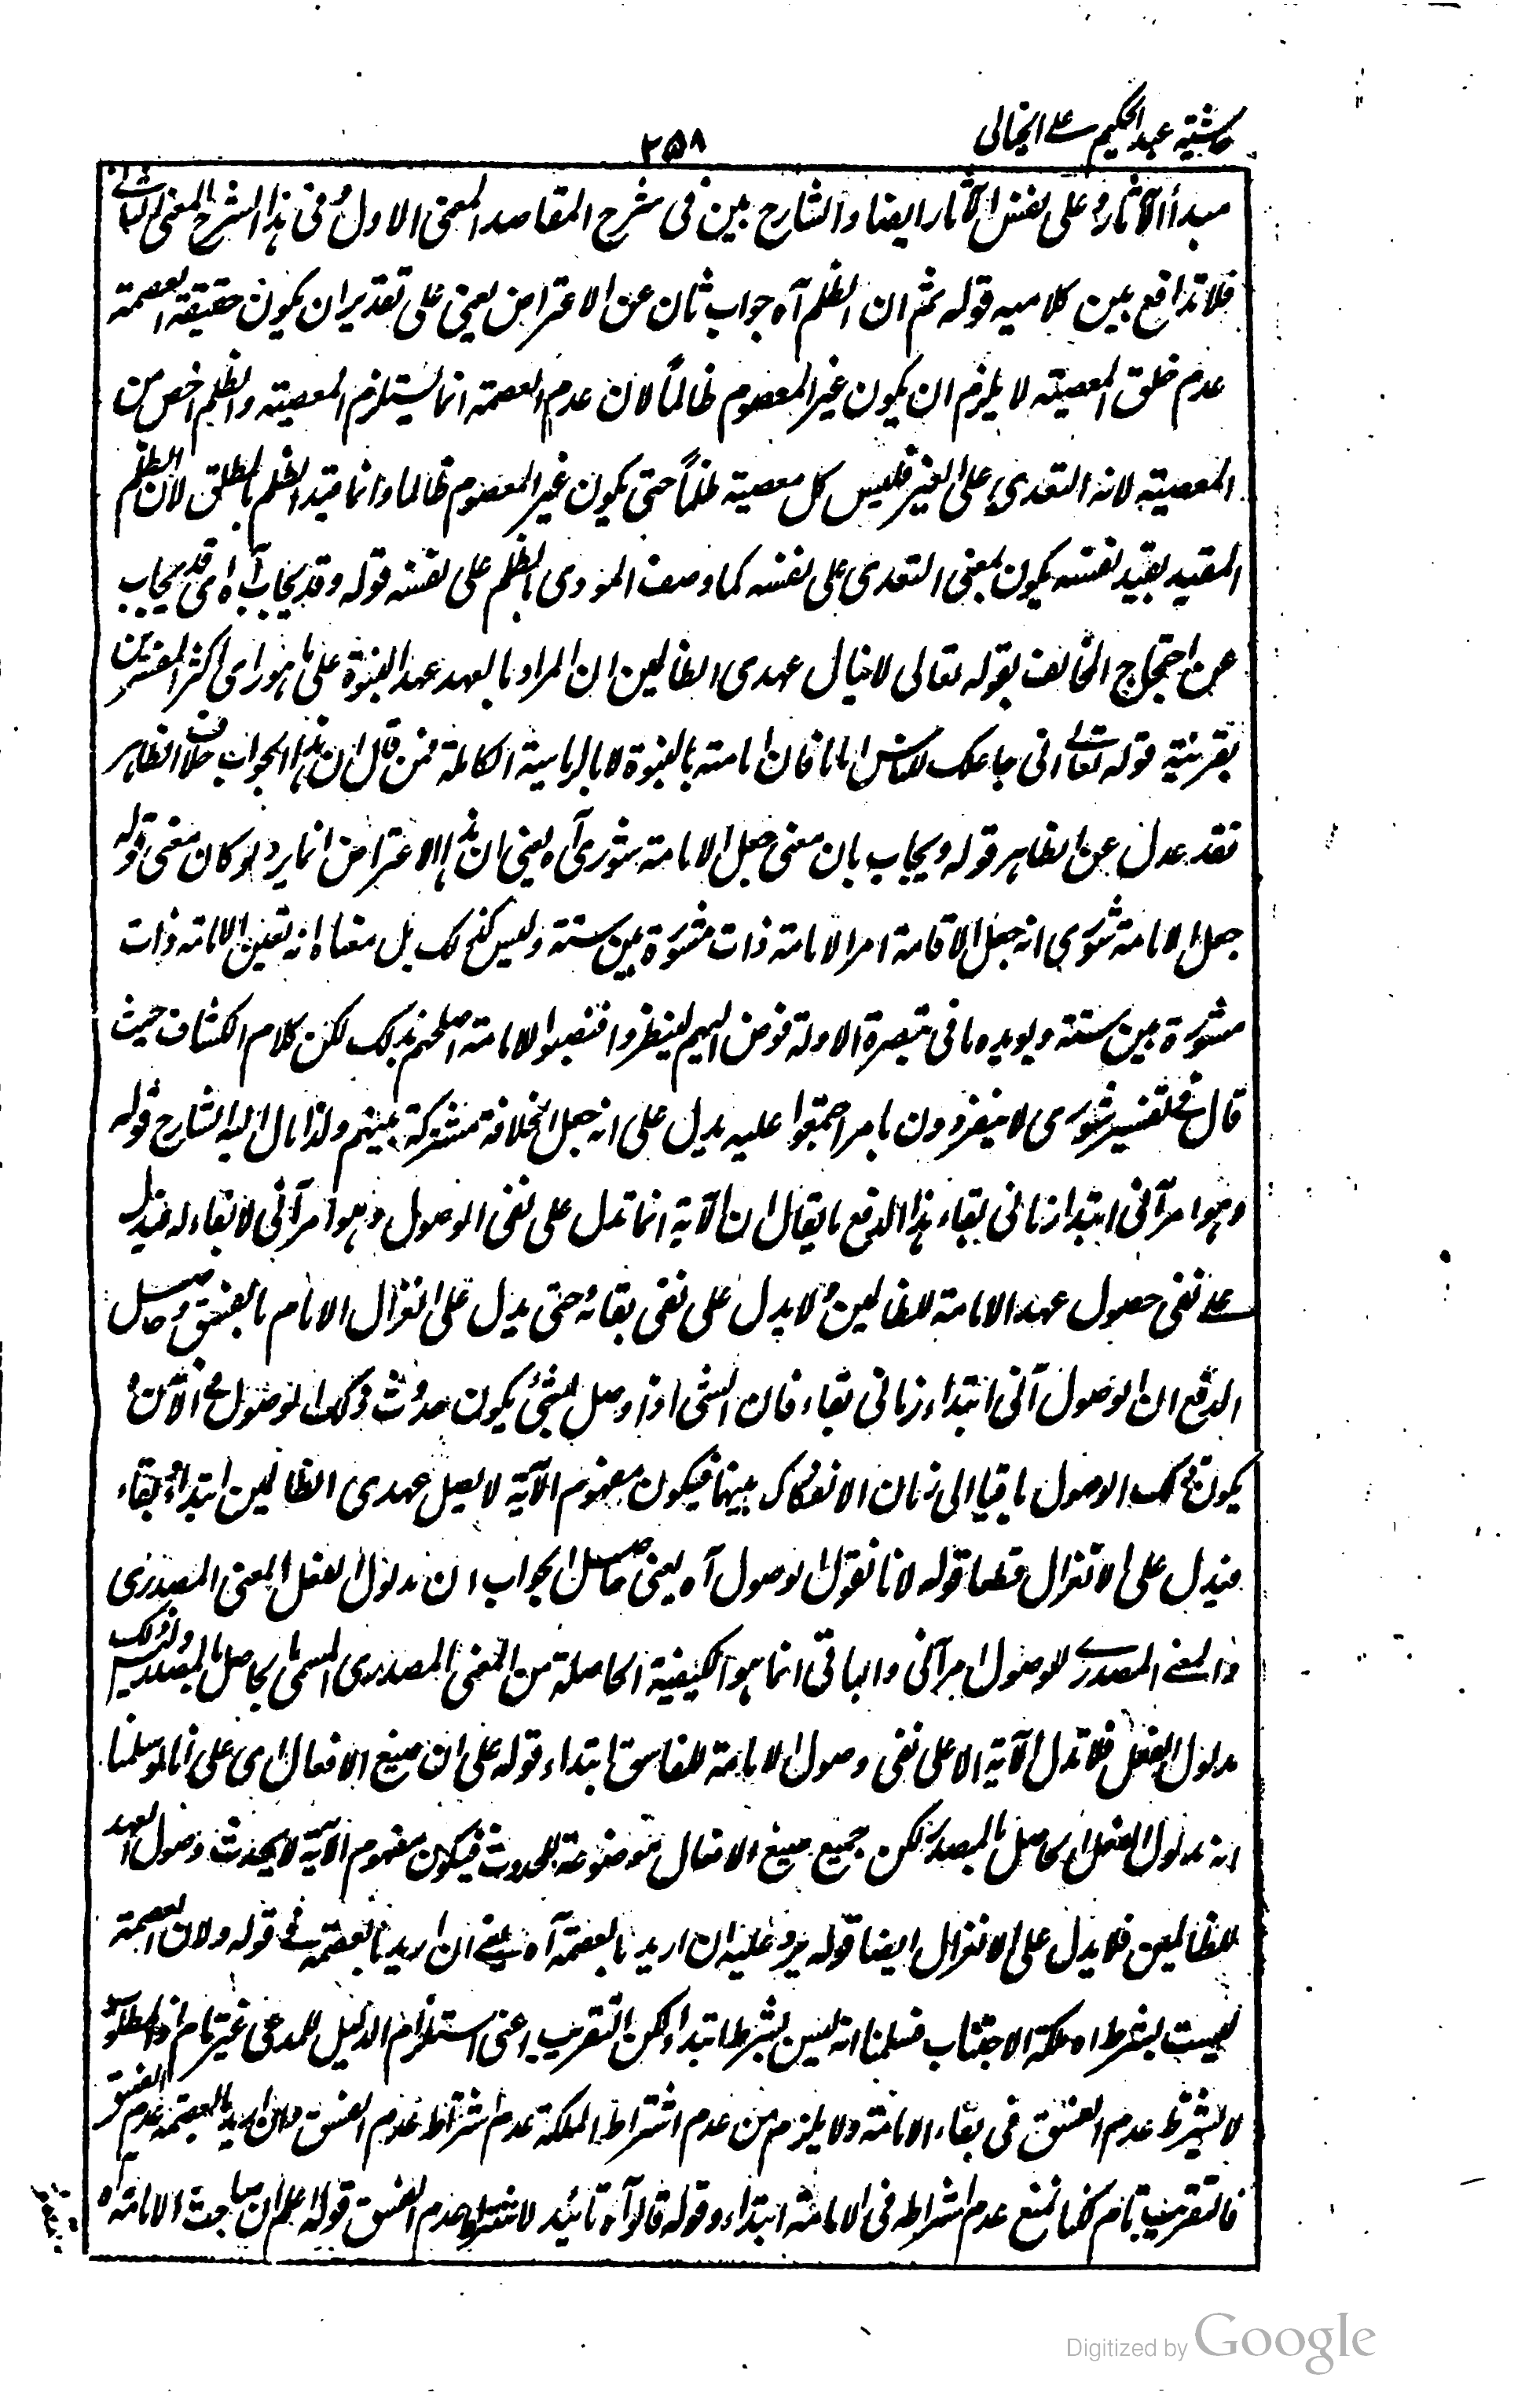 حاشیة عبد الحکیم علی الخیالی
۲۵۸
مبدأ الآثار و علی نفس الآثار ایضا و الشارح بین فی شرح المقاصد المعنی الاول و فی هذا الشرح المعنی الثانی
فلا تدافع بین کلامیه قوله ثم ان الظلم آه جواب ثان عن الاعتراض یعنی علی تقدیر ان یکون حقیقة العصمة
عدم خلق المعصیة لا یلزم ان یکون غیر المعصوم ظالماً لان عدم العصمة انما یستلزم المعصیة و الظلم اخص من
المعصیة لانه التعدی علی الغیر فلیس کل معصیة ظلماً حتی یکون غیر المعصوم ظالما و انما قید الظلم بالمطلق لان الظلم
المقید بقید نفسه یکون بمعنی التعدی علی نفسه کما وصف المودی بالظلم علی نفسه قوله و قد یجاب آه ای قد یجاب
عن احتجاج المخالف بقوله تعالی لا ینال عهدی الظالمین ان المراد بالعهد عهد النبوة علی ما هو رای اکثر المفسرین
بقرینة قوله تعالی انی جاعلک للناس اماما فان امامته بالنبوة لا بالریاسة الکاملة فمن قال ان هذا الجواب خلاف الظاهر
فقد عدل عن الظاهر قوله و یجاب بان معنی جعل الامامة شوری آه یعنی ان هذا الاعتراض انما یرد لو کان معنی قوله
جعل الامامة شوری انه جعل الاقامة امر الامامة ذات مشورة بین ستة و لیس کذلک بل معناه انه تعین الامامة ذات
مشورة بین ستة و یویده ما فی تبصرة الادلة فوض الیهم لینظروا فنصبوا الامامة اصلحهم بذلک لکن کلام الکشاف حیث
قال فی تفسیر شوری لا ینفردون بامر اجمعوا علیه یدل علی انه جعل الخلافة مشترکة بینهم و لذا مال الیه الشارح قوله
و هو امر آنی ابتداء زمانی بقاء هذا لدفع ما یقال ان الآیة انما تدل علی نفی الوصول و هو امر آنی لا بقاء له فیدل
علی نفی حصول عهد الامامة للظالمین و لا یدل علی نفی بقائه حتی یدل علی انعزال الامام بالفسق و حاصل
الدفع ان الوصول آنی ابتداء زمانی بقاء فان الشی اذا وصل بشئ یکون حدوث ذلک الوصول فی الآن و
یکون ذلک الوصول باقیا الی زمان الانفکاک بینهما فیکون مفهوم الآیة لا یصل عهدی الظالمین ابتداء و بقاء
فیدل علی الانعزال قطعا قوله لانا نقول الوصول آه یعنی حاصل الجواب ان مدلول الفعل المعنی المصدری
و المعنی المصدری للوصول امر آنی و الباقی انما هو الکیفیة الحاصلة من المعنی المصدری المسمی بالحاصل بالمصدر و ذلک لیس
مدلول الفعل فلا تدل الآیة الا علی نفی وصول الامامة للفاسق ابتداء قوله علی ان صیغ الافعال ای علی انا لو سلمنا
انه مدلول الفعل الحاصل بالمصدر لکن جمیع صیغ الافعال موضوعة للحدوث فیکون مفهوم الآیة لا یحدث وصول العهد
للظالمین فلا یدل علی الانعزال ایضا قوله یرد علیه ان ارید بالعصمة آه یعنی ان ارید بالعصمة فی قوله و لان العصمة
لیست بشرط اه ملکة الاجتناب فسلمنا انه لیس بشرط ابتداء لکن التقریب اعنی استلزام الدلیل للمدعی غیر تام اذ المطلوب
لا یشترط عدم الفسق فی بقاء الامامة و لا یلزم من عدم اشتراط الملکة عدم اشتراط عدم الفسق و ان ارید بالعصمة عدم الفسق
فالتقریب تام لکنا نمنع عدم اشتراطه فی الامامة ابتداء و قوله قالوا آه تائید لاشتراط عدم الفسق قوله اعلم ان مباحث الامامة اه
Digitized by Google